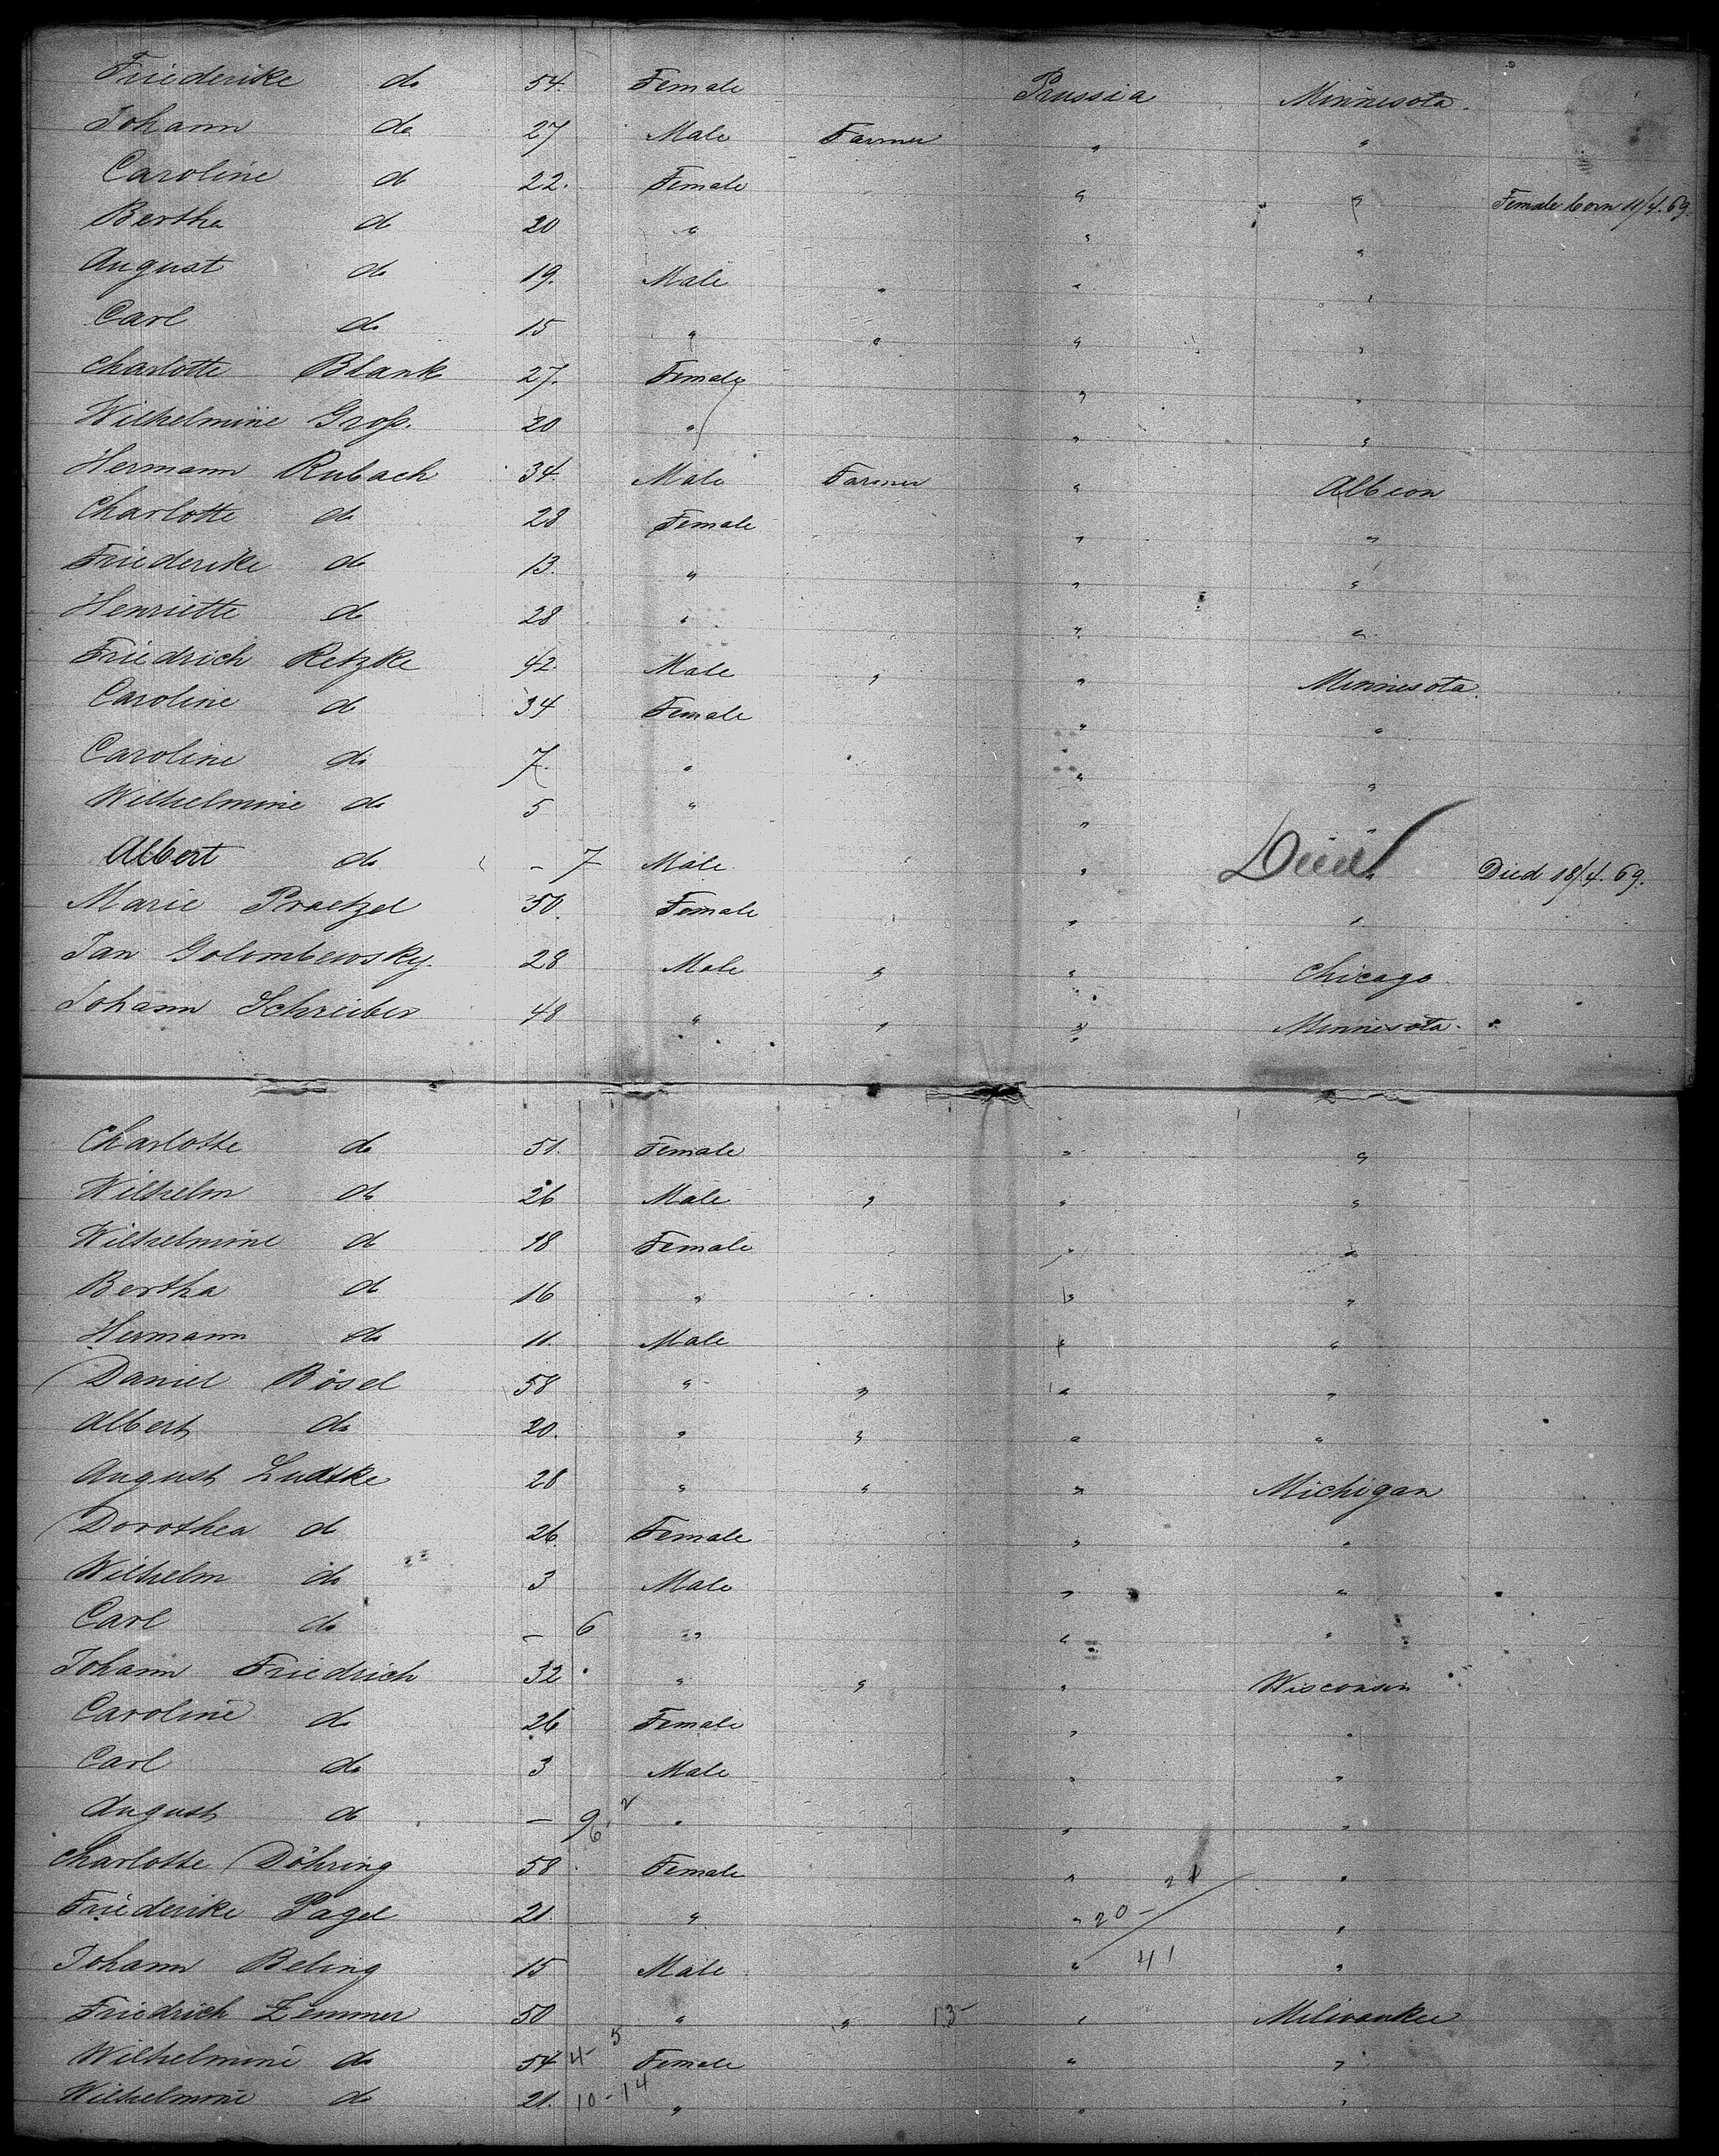 Friederike do 54. Female Prussia Minnesota.
Johann do 27 Male Farmer " "
Caroline do 22. Female " " Female born 11/4. 69.
Bertha do 20 " " "
August do 19. Male " " "
Carl do 15 " " " "
Charlotte Blank 27. Female " "
Wilhelmine Groß. 20 " " "
Hermann Rubach 34. Male Farmer " Albion
Charlotte do 28 Female " "
Friederike do 13. " " "
Henriette do 28 " " "
Friedrich Retzke 42. Male " " Minnesota.
Caroline do 34 Female " "
Caroline do 7. " " "
Wilhelmine do 5 " " "
Albert do - 7 Male. " Died " Died 18/4. 69.
Marie Praetzel 50. Female " "
Jan Golombewsky. 28 Male " " Chicago
Johann Schreiber 48 " " " Minnesota.
Charlotte do 51. Female " "
Wilhelm do 26 Male " " "
Wilhelmine do 18 Female " "
Bertha do 16 " " "
Hermann do 11. Male " "
Daniel Bösel 58 " " " "
Albert do 20. " " " "
August Ludtke 28 " " " Michigan
Dorothea do 26. Female " "
Wilhelm do 3 Male " "
Carl do - 6 " " "
Johann Friedrich 32 " " " Wisconsin
Caroline do 26 Female " "
Carl do 3 Male " "
August do - 9 " " "
6 2
Charlotte Döhring 58 Female " "
21
Friederike Pagel 21. " " 20- "
Johann Beling 15 Male " 41 "
Friedrich Zemmer 50 " " 13- " Milwaukee
Wilhelmine do 54 4- 5 Female " "
Wilhelmine do 21. 10-14 " " "